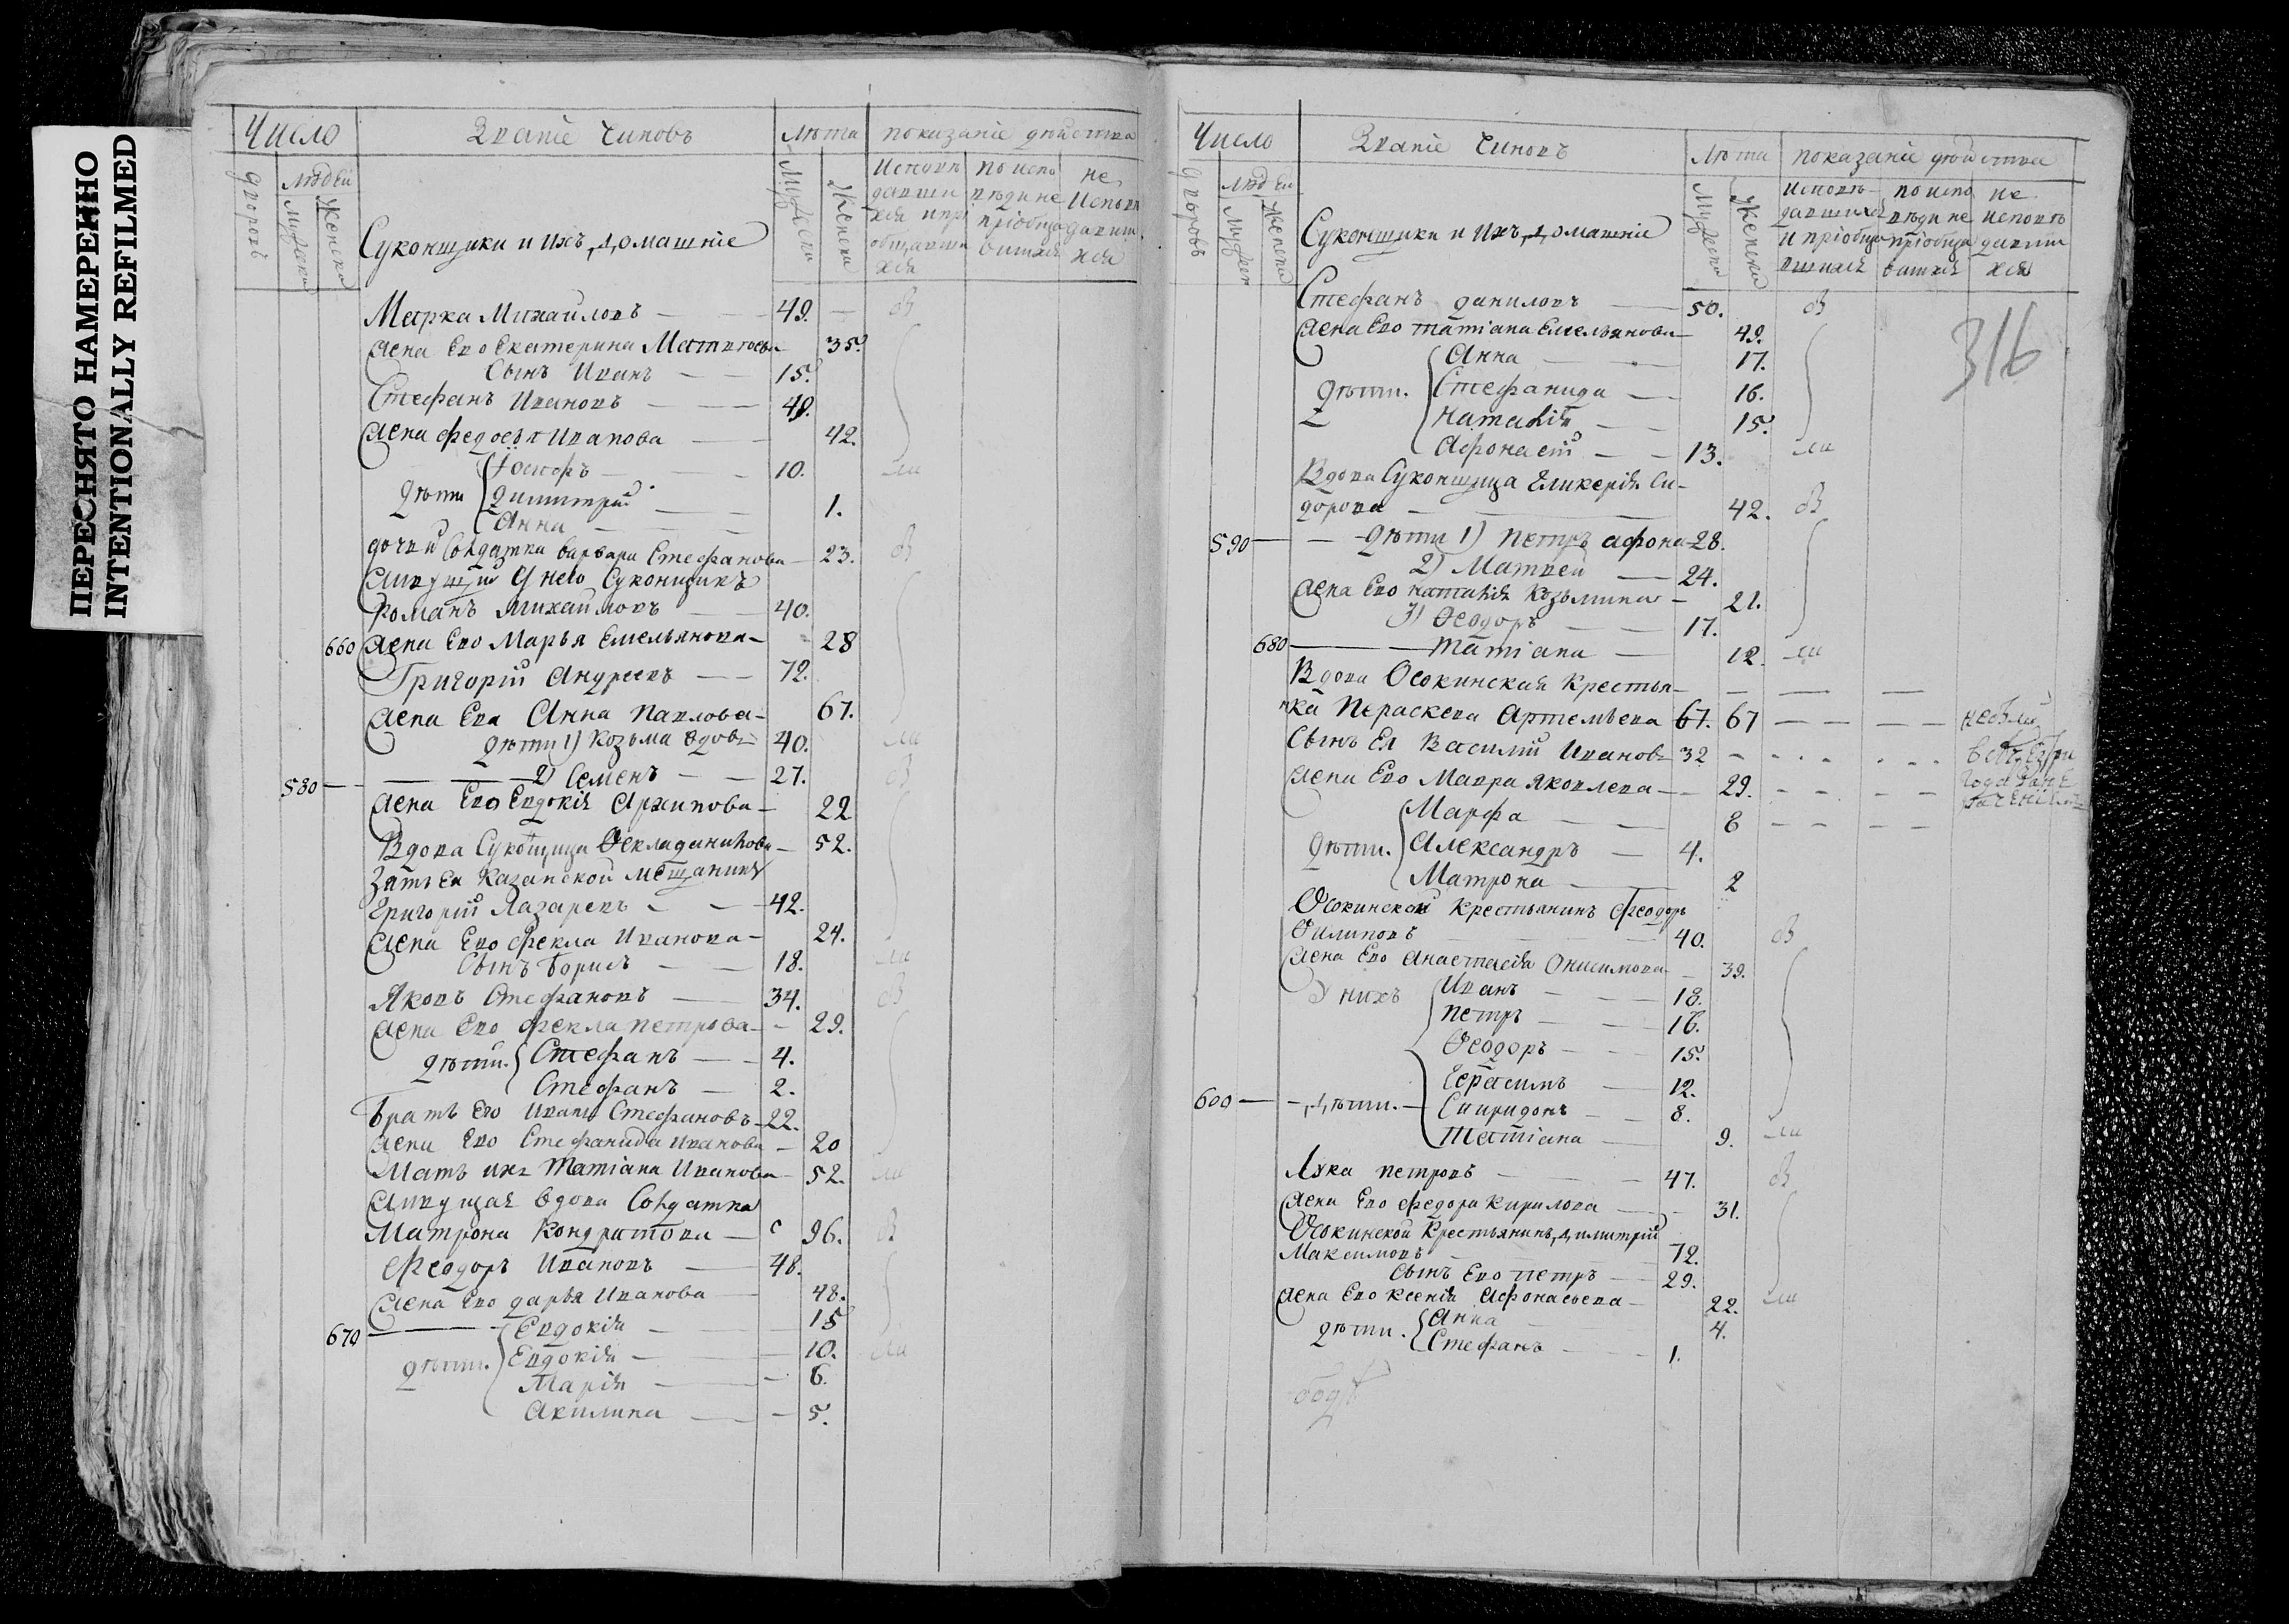 ПЕРЕСНЯТО НАМЕРЕННО
INTENTIONALLY REFILMED
Число Званіе Чиновъ Лѣта показаніе дѣйства
дворовъ людей мужеска женска мужеска женска
Исповѣдавшихся и пріобщавшихся по исповѣди не пріобщавшихся не исповѣдавшихся
Суконщики и ихъ домашніе
Марка Михайловъ — 49.
Жена Ево Екатерина Матвѣева 35.
Сынъ Иванъ — 15.
Стефанъ Ивановъ — 49.
Жена Федосья Иванова 42.
Іосифъ — 10.
дѣти Димитрій —
Анна — 1.
дочь и Солдатка Варвара Стефанова — 23.
Живущій У него Суконщикъ
Романъ Михайловъ 40.
660 Жена Ево Марья Емельянова — 28
Григорій Андреевъ — 72.
Жена Ево Анна Павлова — 67.
дѣти 1) Козьма вдовъ 40.
580 — 2) Семенъ — 27.
Жена Ево Евдокія Архипова — 22
Вдова Суконщица Фекла Данилова — 52.
Зять Ея Казанской мещанинъ
Григорій Лазаревъ — 42.
Жена Ево Фекла Иванова — 24.
Сынъ Борисъ — 18.
Яковъ Стефановъ — 34.
Жена Ево Фекла Петрова — 29.
дѣти. Стефанъ — 4.
Стефанъ — 2.
Братъ Его Иванъ Стефановъ — 22.
Жена Ево Стефанида Иванова — 20
Мать ихъ Татіана Иванова 52.
Живущая вдова Солдатка
Матрона Кондратова — 96.
Феодоръ Ивановъ — 48.
Жена Ево Дарья Иванова 48.
670 — Евдокія — 15
дѣти. Евдокія — 10.
Марія — 6.
Акилина — 5.
Число Званіе Чиновъ Лѣта показаніе дѣйства
дворовъ людей мужеска женска мужеска женска
Исповѣдавшихся и пріобщавшихся по исповѣди не пріобщавшихся не исповѣдавшихся
Суконщики и ихъ домашніе
316
Стефанъ Даниловъ — 50.
Жена Ево Татіана Емельянова — 49.
Анна — 17.
дѣти. Стефанида — 16.
Наталія — 15.
Афонасій — 13.
Вдова Суконщица Гликерія Си-
дорова — 42.
590 — дѣти 1) Петръ Афона 28.
2) Матвей — 24.
Жена Ево Наталія Козьмина — 21.
3) Феодоръ — 17.
680 — Татіана — 12.
Вдова Осокинская Крестья-
нка Параскева Артемьева 67. 67
Сынъ Ея Василій Ивановъ 32
Жена Ево Мавра Яковлева — 29.
Марфа — 8
дѣти. Александръ — 4.
Матрона — 2
Осокинской Крестьянинъ Феодоръ
Филиповъ 40.
Жена Ево Анастасія Онисимова — 39.
У нихъ Иванъ — 18.
Петръ — 16.
Феодоръ — 15.
Герасимъ — 12.
600 — дѣти. — Спиридонъ — 8.
Татіана — 9.
Лука Петровъ — 47.
Жена Ево Федора Кирилова — 31.
Осокинской Крестьянинъ Димитрій
Максимовъ — 72.
Сынъ Ево Петръ — 29.
Жена Ево Ксенія Афонасьева — 22.
дѣти. Анна — 4.
Стефанъ — 1.